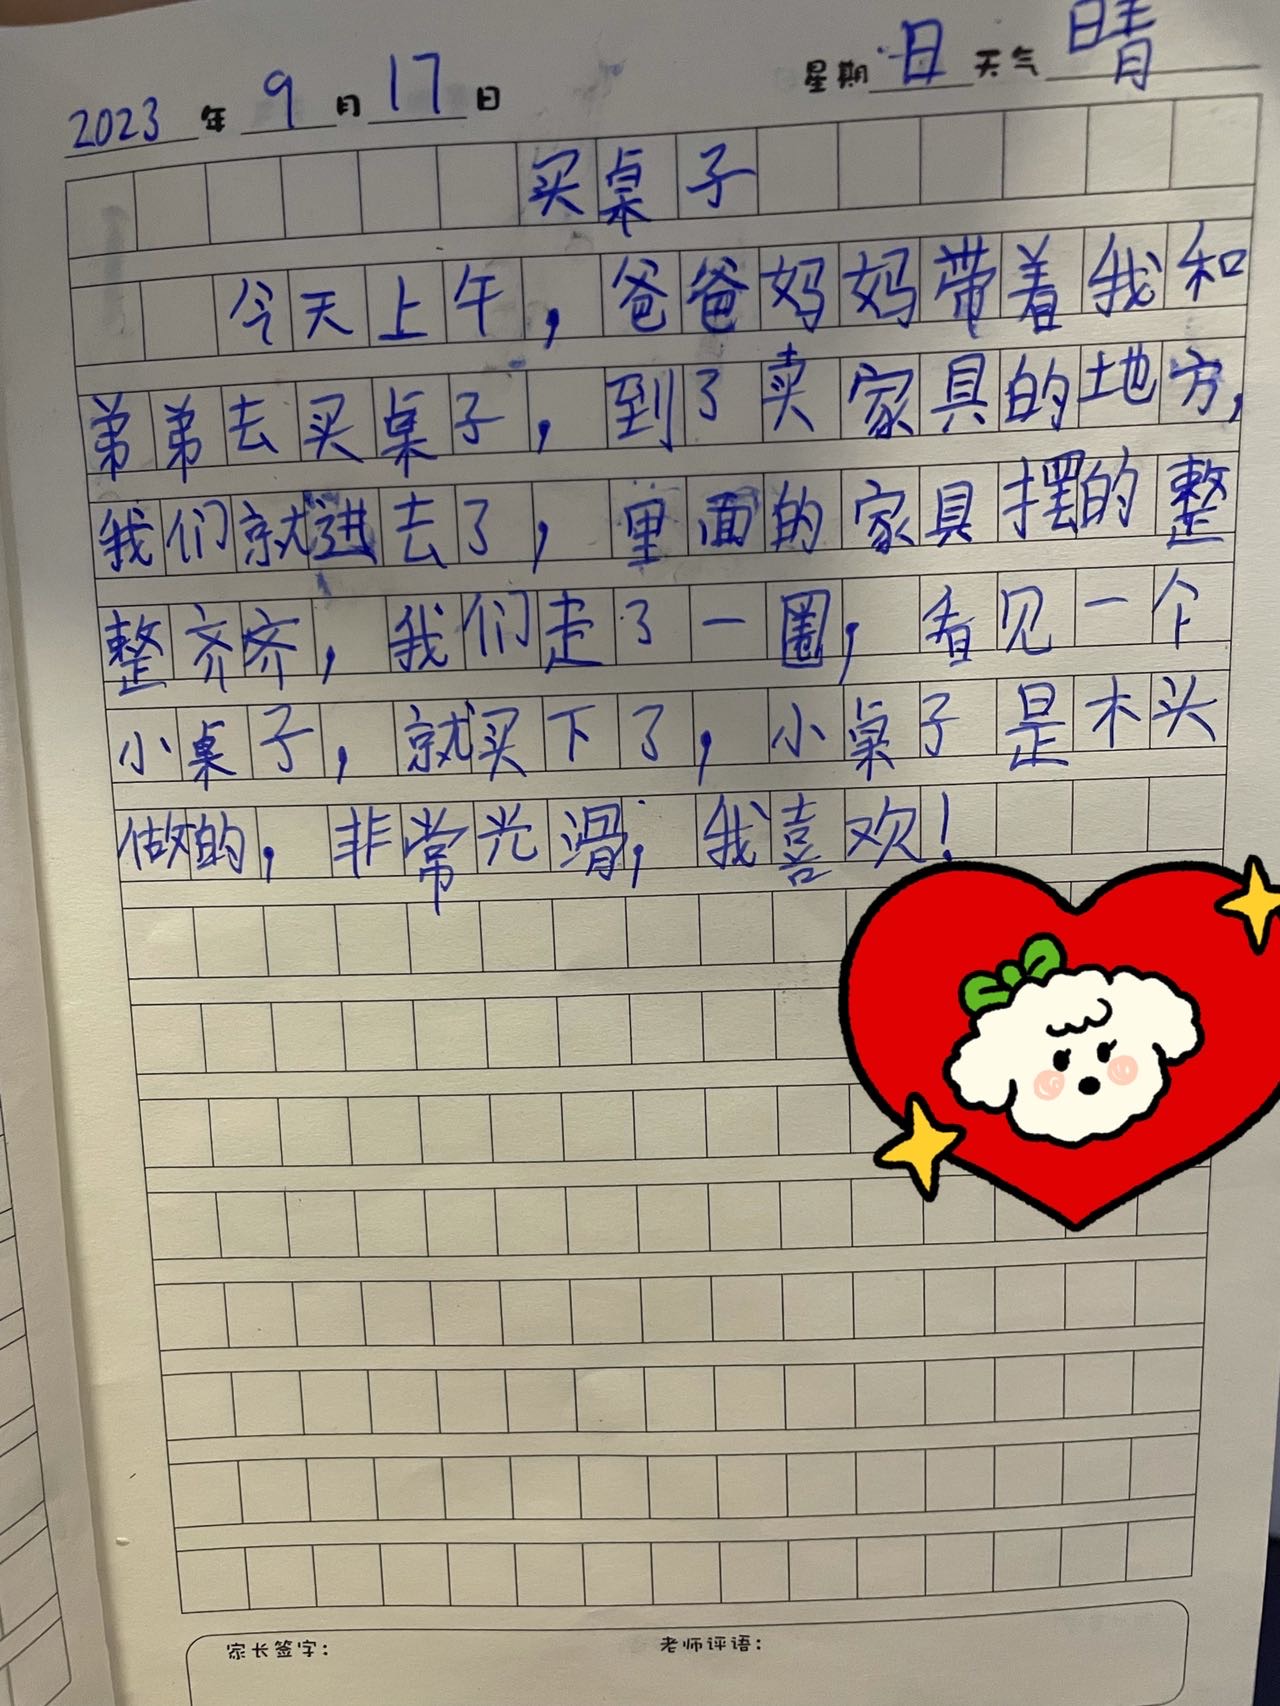 2023年9月17日 星期日天气晴
买桌子
今天上午，爸爸妈妈带着我和
弟弟去买桌子，到了卖家具的地方，
我们就进去了，里面的家具摆的整
整齐齐，我们走了一圈，看见一个
小桌子，就买下了，小桌子是木头
做的，非常光滑，我喜欢！
家长签字： 老师评语：